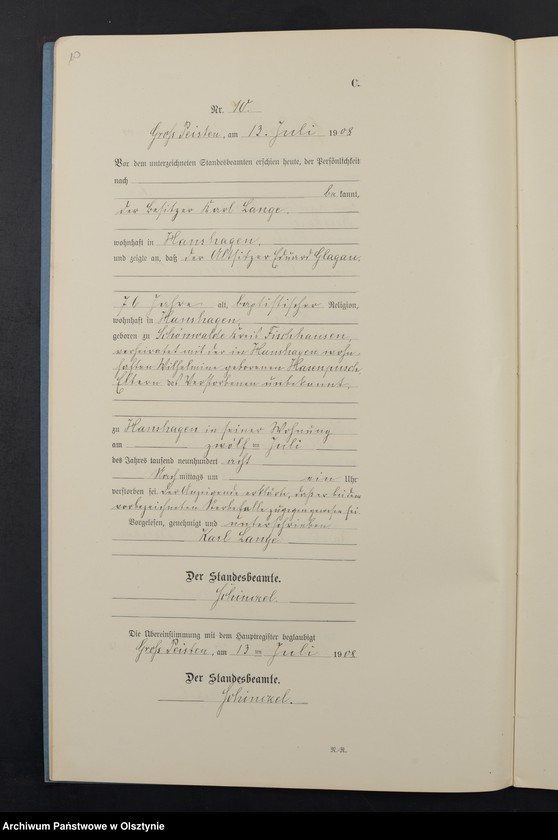 10
C.
Nr. 10.
Groß Peisten, am 13. Juli 1908
Vor dem unterzeichneten Standesbeamten erschien heute, der Persönlichkeit
nach
be kannt,
der Besitzer Karl Lange.
wohnhaft in Hanshagen.
und zeigte an, daß der Altsitzer Eduard Glagau,
76 Jahre alt, baptistischer Religion,
wohnhaft in Hanshagen,
geboren zu Schönwalde Kreis Fischhausen,
verheiratet mit der in Hanshagen wohn
haften Wilhelmine geborenen Hasenpusch
Eltern des Verstorbenen unbekannt.
zu Hanshagen in seiner Wohnung
am zwölften Juli
des Jahres tausend neunhundert acht
Nach mittags um ein Uhr
verstorben sei. Der Anzeigende erklärte, daß er bei dem
vorbezeichneten Sterbefalle zugegen gewesen sei.
Vorgelesen, genehmigt und unterschrieben
Karl Lange
Der Standesbeamte.
Die Übereinstimmung mit dem Hauptregister beglaubigt
Groß Peisten, am 13ten Juli 1908
Der Standesbeamte.
N.-R.
Archiwum Państwowe w Olsztynie